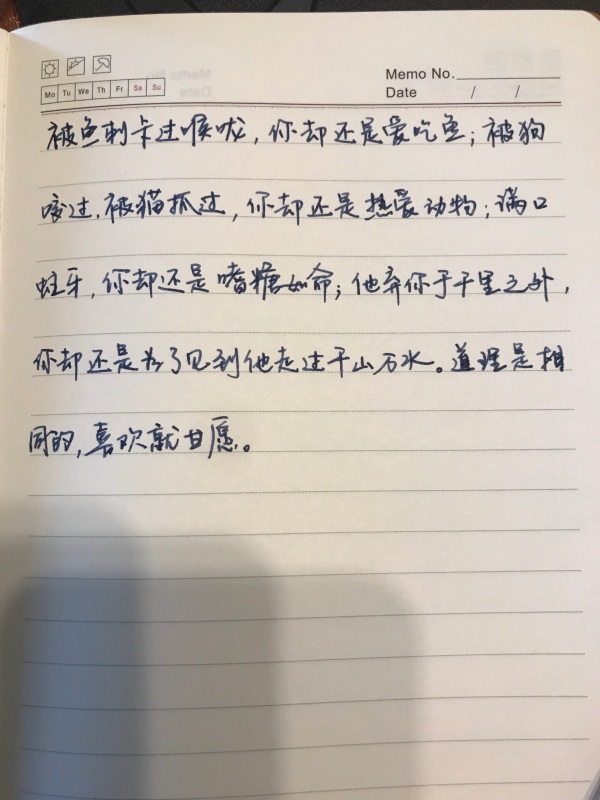 Memo No.
Mo Tu We Th Fr Sa Su
Date / /
被鱼刺卡过喉咙，你却还是爱吃鱼；被狗
咬过，被猫抓过，你却还是热爱动物；满口
蛀牙，你却还是嗜糖如命；他弃你于千里之外，
你却还是为了见到他走过千山万水。道理是相
同的，喜欢就甘愿。